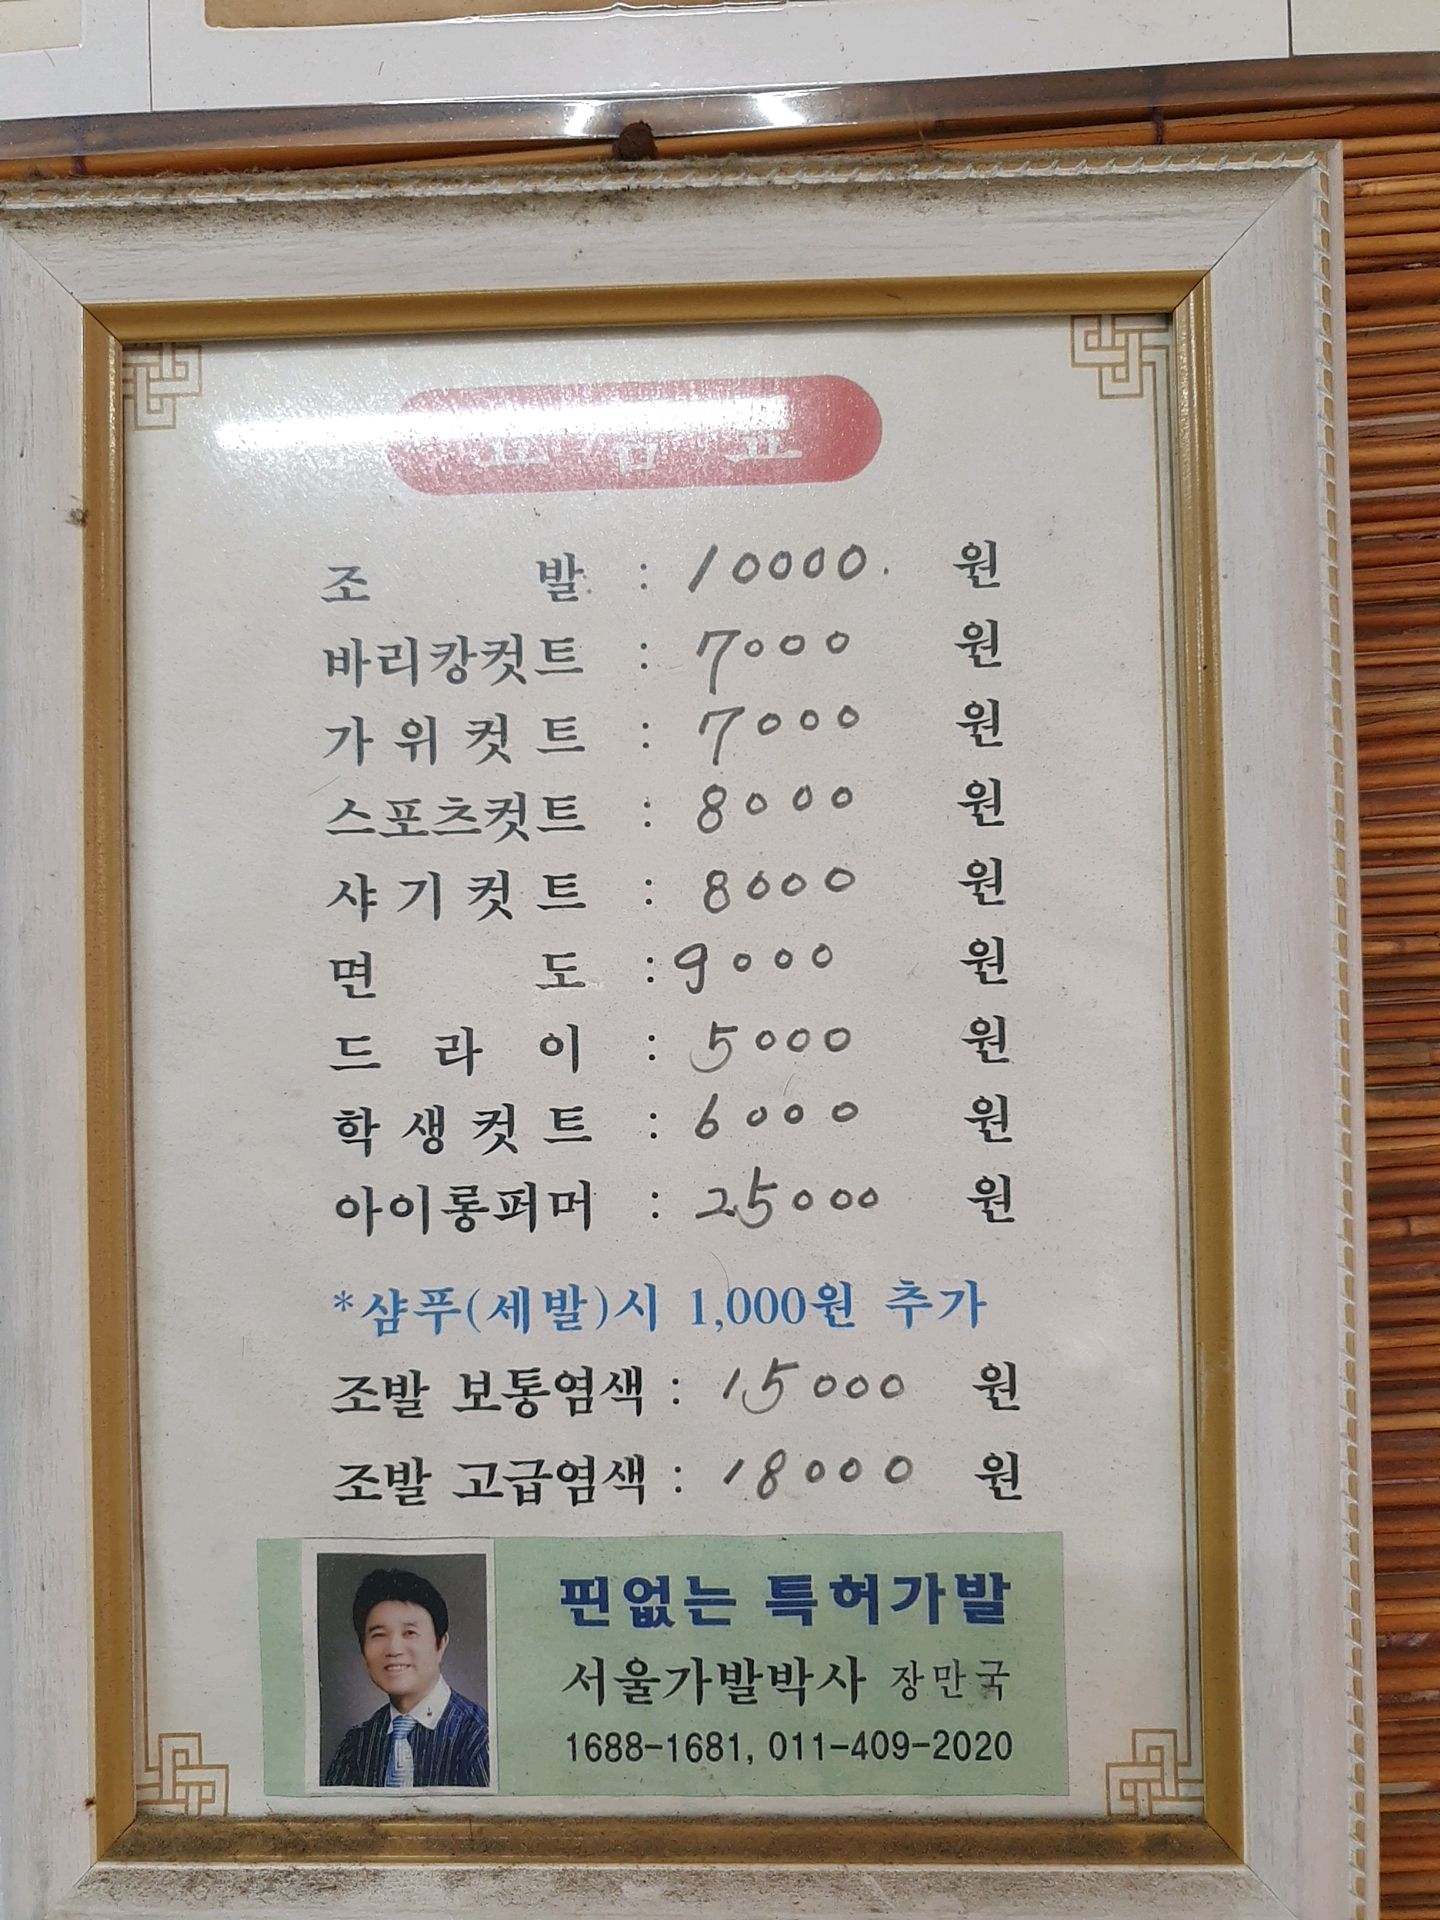 요 금 표
조 발 : 10000. 원
바리캉컷트 : 7000 원
가위컷트 : 7000 원
스포츠컷트 : 8000 원
샤기컷트 : 8000 원
면 도 : 9000 원
드 라 이 : 5000 원
학생컷트 : 6000 원
아이롱퍼머 : 25000 원
*샴푸(세발)시 1,000원 추가
조발 보통염색 : 15000 원
조발 고급염색 : 18000 원
핀없는 특허가발
서울가발박사 장만국
1688-1681, 011-409-2020